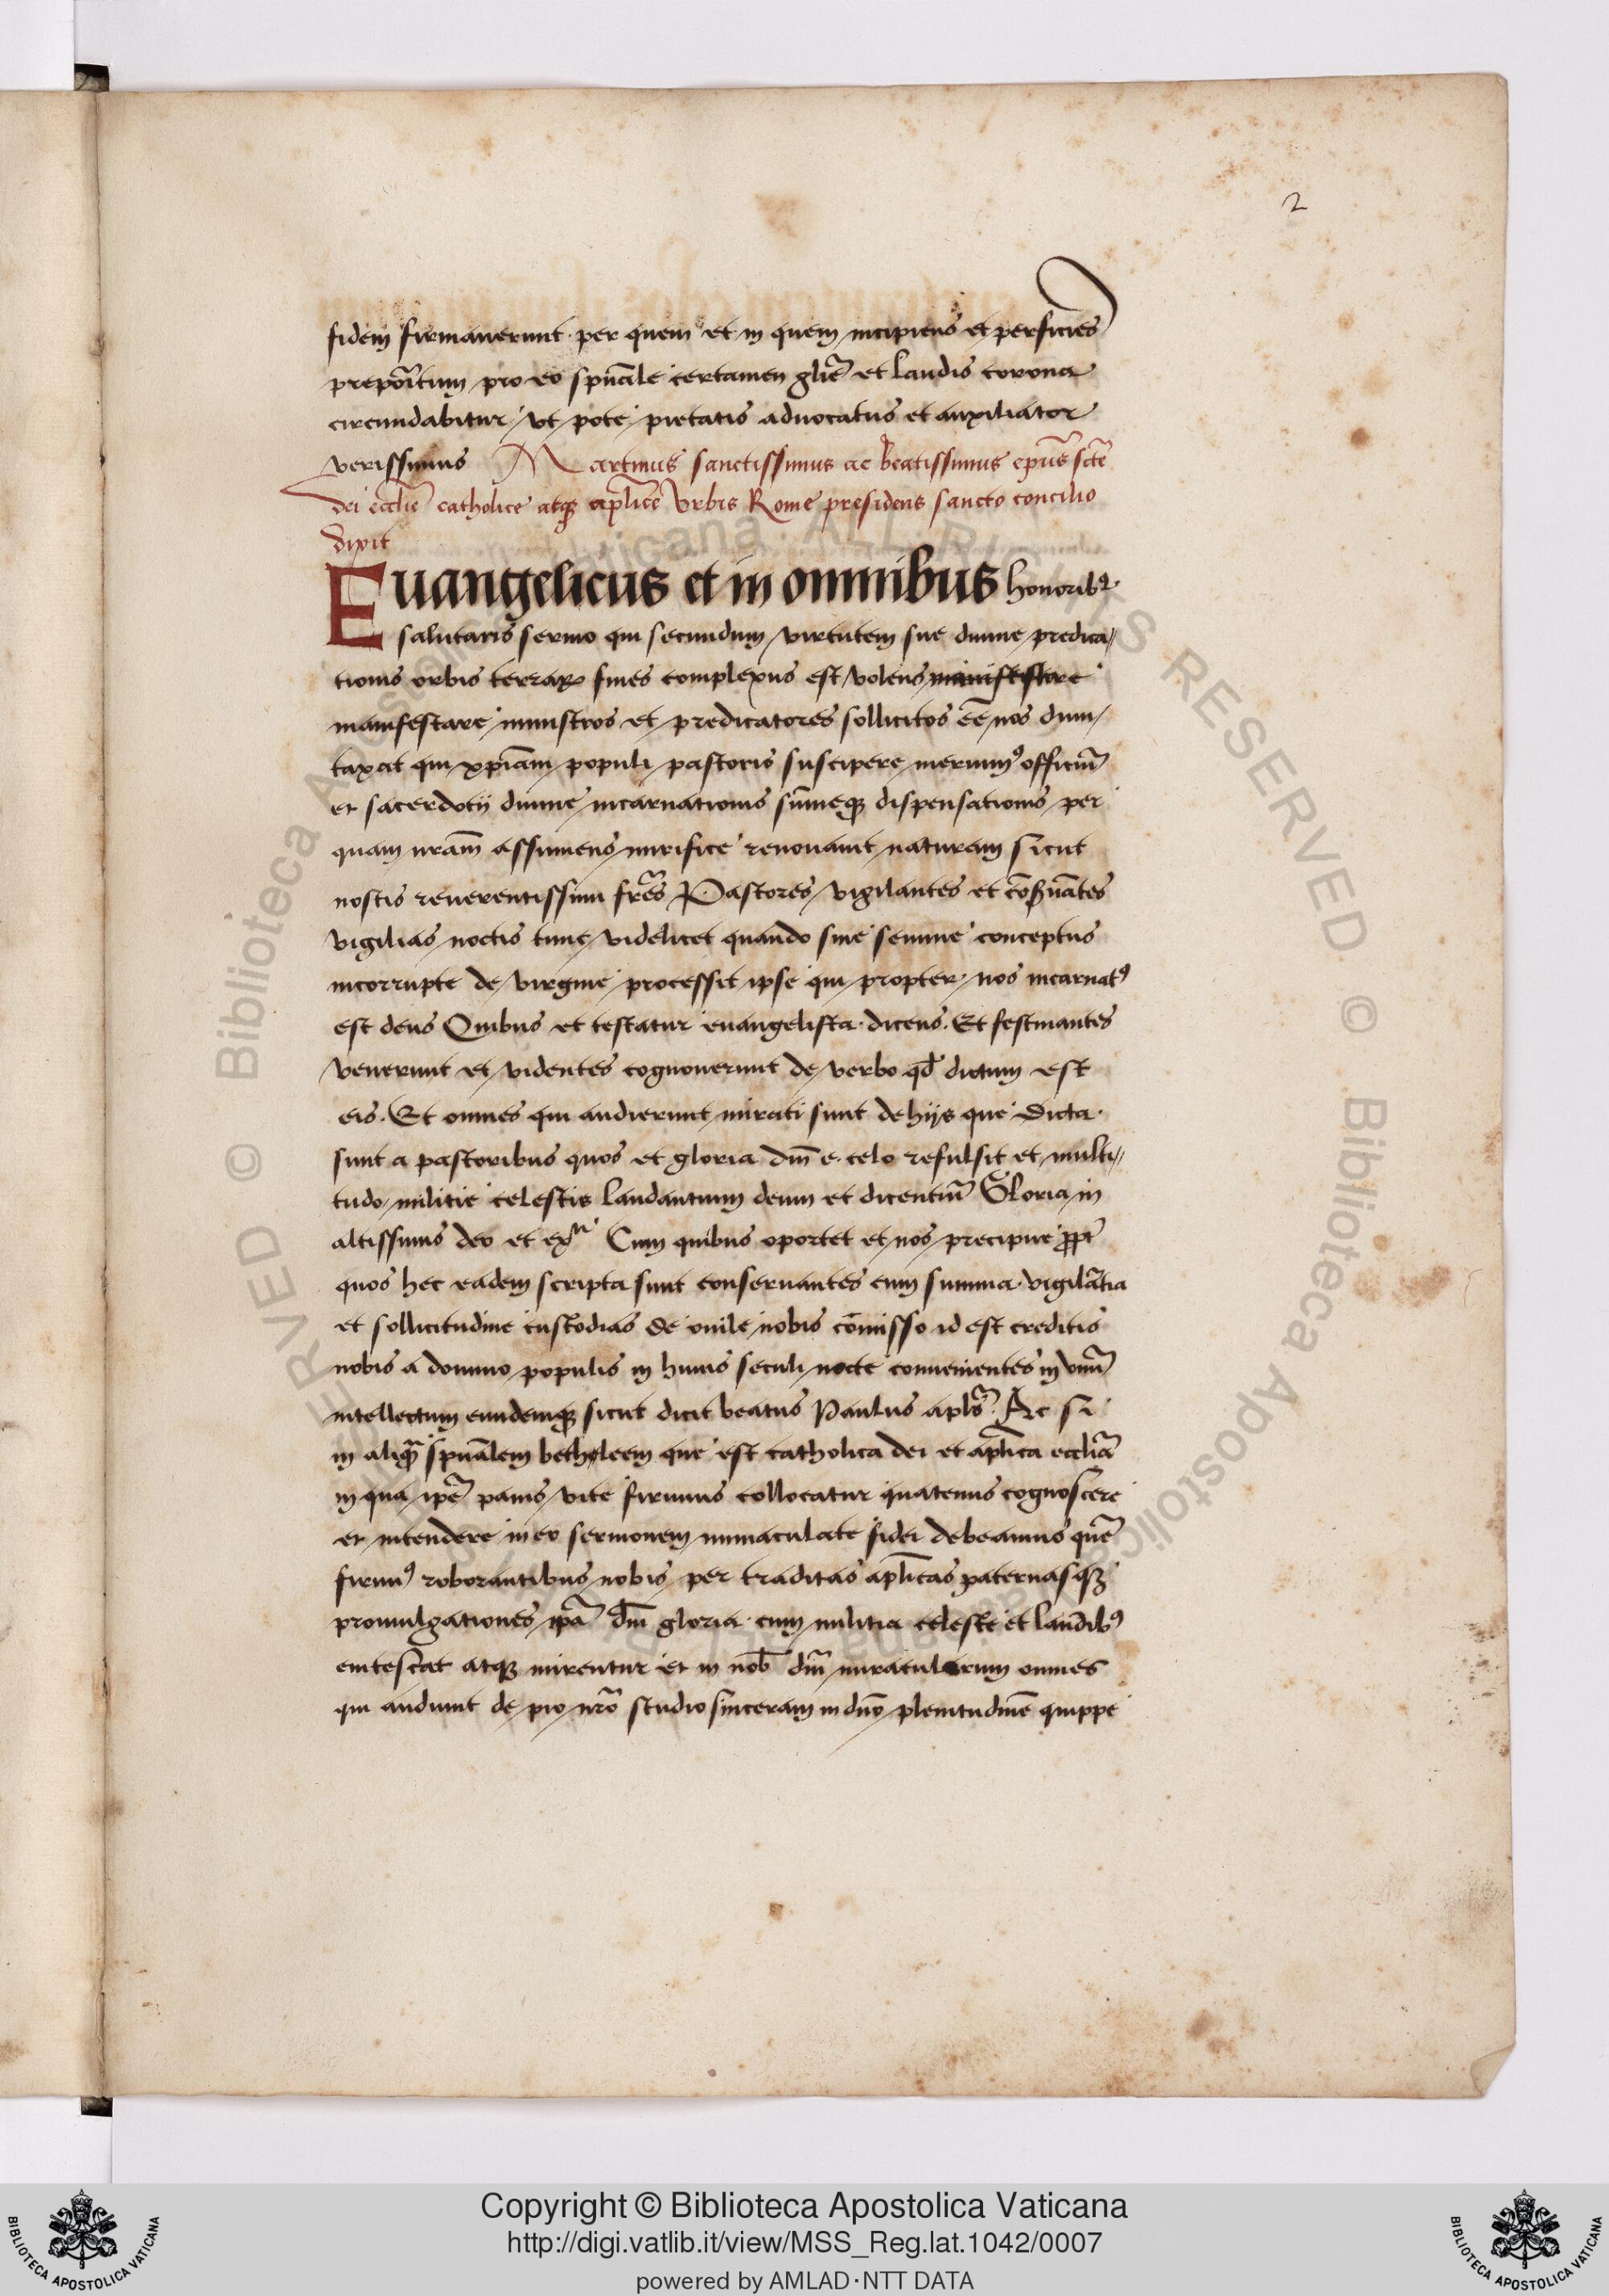 2
fidem firmauerunt · per quem et in quem incipiens et perficies
prepoitum pro eo spuale certamen glie et laudis corona
circundabitur / vt pote pietatis aduocatus et auxiliator
verissimus Martinus sanctissimus ac beatissimus epus scte
dei ecclie catholice atqꝫ aplice Vrbis Rome presidens sancto concilio
dixit
Euangelicus et in omnibus honoribꝰ
salutaris sermo qui secundum virtutem sue diuine predica//
tionis orbis terraꝝ fines complexus est volens
manifestare ministros et predicatores sollicitos eē nos dum/
taxat qui xpiam populi pastoris suscipere meruimꝰ officiū
et sacerdotij diuine incarnationis sūmeqꝫ dispensationis per
quam nram assumens mirifice renouauit naturam sicut
nostis reuerentissimi fres Pastores vigilantes et cōseruātes
vigilias noctis tunc videlicet quando sine semine conceptus
incorrupte de virgine processit ipse qui propter nos incarnatꝰ
est deus Quibus et testatur euangelista dicens. Et festinantes
venerunt et videntes cognouerunt de verbo qd dictum est
eis. Et omnes qui audierunt mirati sunt de hijs que dicta
sunt a pastoribus quos et gloria dm e celo refulsit et multi//
tudo militie celestis laudantium deum et dicentiū Gloria in
altissimis deo et Cum quibus oportet et nos precipue ꝓpt
quos hec eadem scripta sunt conseruantes cum summa vigilātia
et sollicitudine custodias de ouile nobis cōmisso id est creditis
nobis a domino populis in huius seculi nocte conuenientes in vnū
intellectum eundemqꝫ sicut dicit beatus Paulus apls. Ac si
in aliqua spualem bethleem que est catholica dei et aplica eccliā
in qua ipē panis vite firmius collocatur quatenus cognoscere
et intendere in eo sermonem immaculate fidei debeamus quē
firmiꝰ roborantibus nobis per traditas aplicas paternasqꝫ
promulgationes ipā dm gloria cum militia celeste et laudibꝰ
enitescat atqꝫ mirentur et in nob dm miraculorum omnes
qui audiunt de pio nro studio sinceram in dno plenitudinē quippe
Copyright © Biblioteca Apostolica Vaticana
http://digi.vatlib.it/view/MSS_Reg.lat.1042/0007
powered by AMLAD·NTT DATA